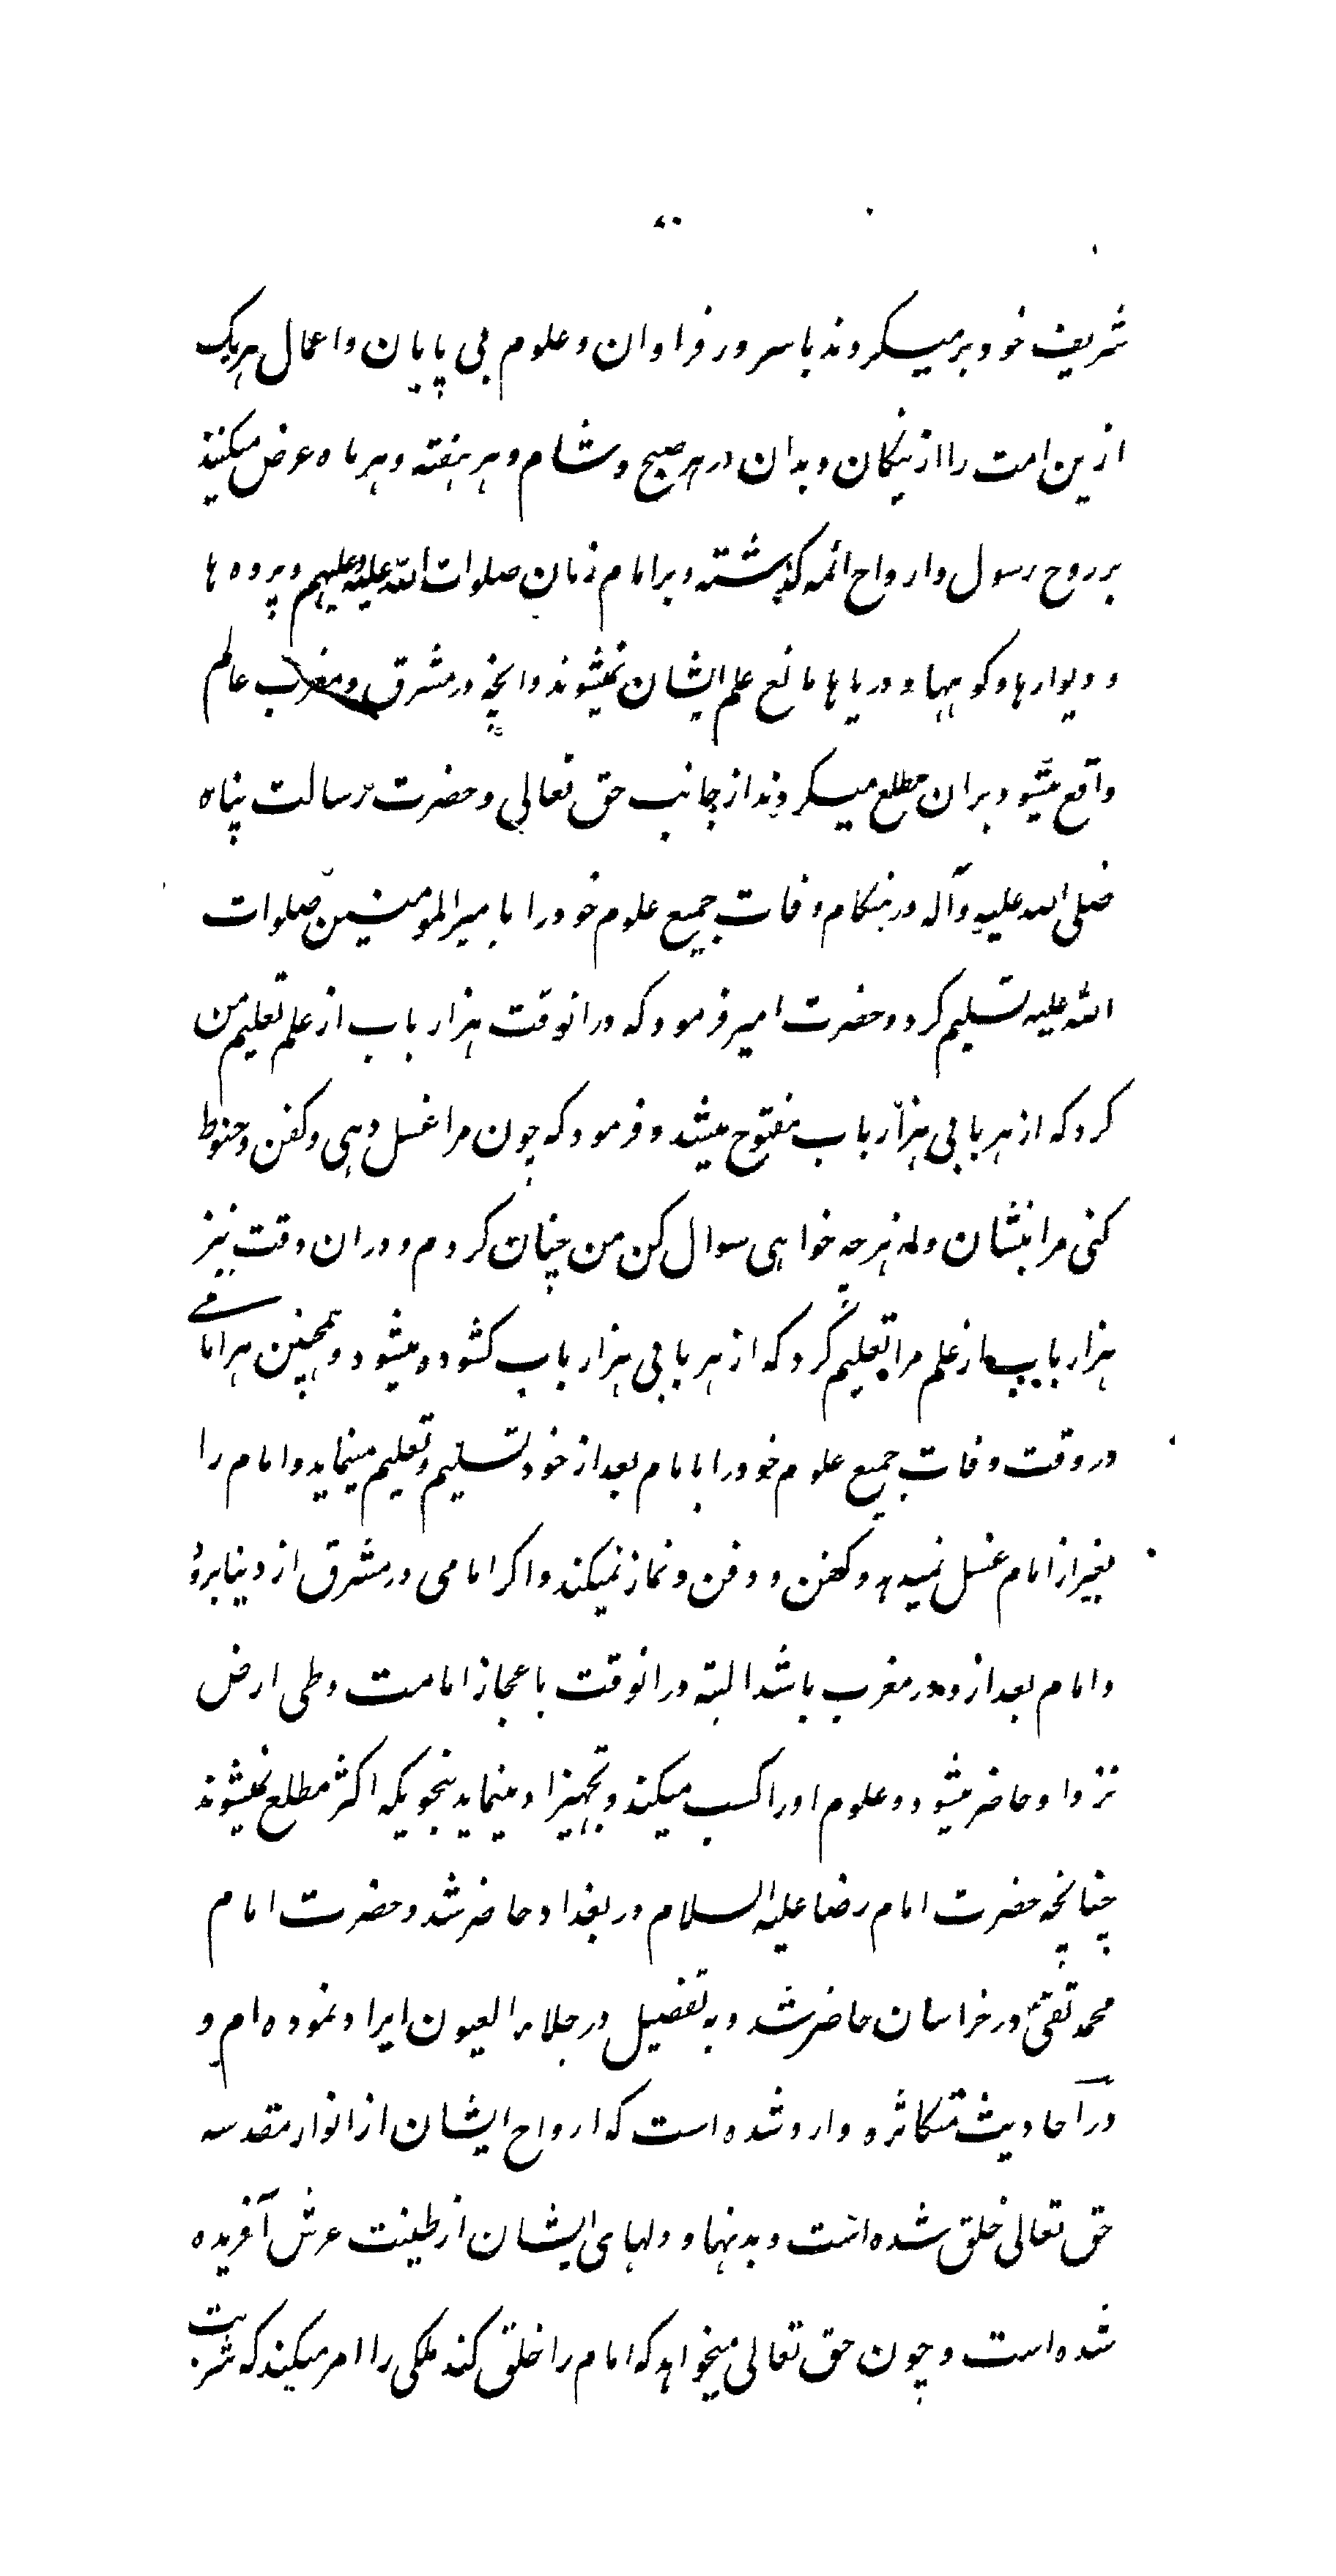 ۷۰
شریف خود برمیکردند با سرور فراوان و علوم بی پایان و اعمال هریک
ازین امت را از نیکان و بدان در هر صبح و شام و هر هفته و هر ماه عرض میکنند
بر روح رسول و ارواح ائمه گذشته و بر امام زمان صلوات الله علیه و علیهم و پرده ها
و دیوارها و کوهها و دریاها مانع علم ایشان نمیشوند و انچه در مشرق و مغرب عالم
واقع میشود بران مطلع میکردند از جانب حق تعالی و حضرت رسالت پناه
صلی الله علیه وآله در هنکام وفات جمیع علوم خود را بامیرالمومنین صلوات
الله علیه تسلیم کرد و حضرت امیر فرمود که در انوقت هزار باب از علم تعلیم من
کرد که از هر بابی هزار باب مفتوح میشد و فرمود که چون مرا غسل دهی و کفن و حنوط
کنی مرا بنشان و هرچه خواهی سوال کن من چنان کردم و دران وقت نیز
هزار باب از علم مرا تعلیم کرد که از هر بابی هزار باب کشوده میشود و همچنین هر امامی
در وقت وفات جمیع علوم خود را بامام بعد از خود تسلیم و تعلیم مینماید و امام را
بغیر از امام غسل نمیدهد و کفن و دفن و نماز نمیکند و اکر امامی در مشرق از دنیا برود
و امام بعد ازو در مغرب باشد البته در انوقت باعجاز امامت و طی ارض
نزد او حاضر میشود و علوم او را کسب میکند و تجهیز او مینماید بنحویکه اکثر مطلع نمیشوند
چنانچه حضرت امام رضا علیه السلام در بغداد حاضر شد و حضرت امام
محمد تقی در خراسان حاضر شد و به تفصیل در جلاء العیون ایراد نموده ام و
در آحادیث متکاثره وارد شده است که ارواح ایشان از انوار مقدسه
حق تعالی خلق شده است و بدنها و دلهای ایشان از طینت عرش آفریده
شده است و چون حق تعالی میخواهد که امام را خلق کند ملکی را امر میکند که شربت